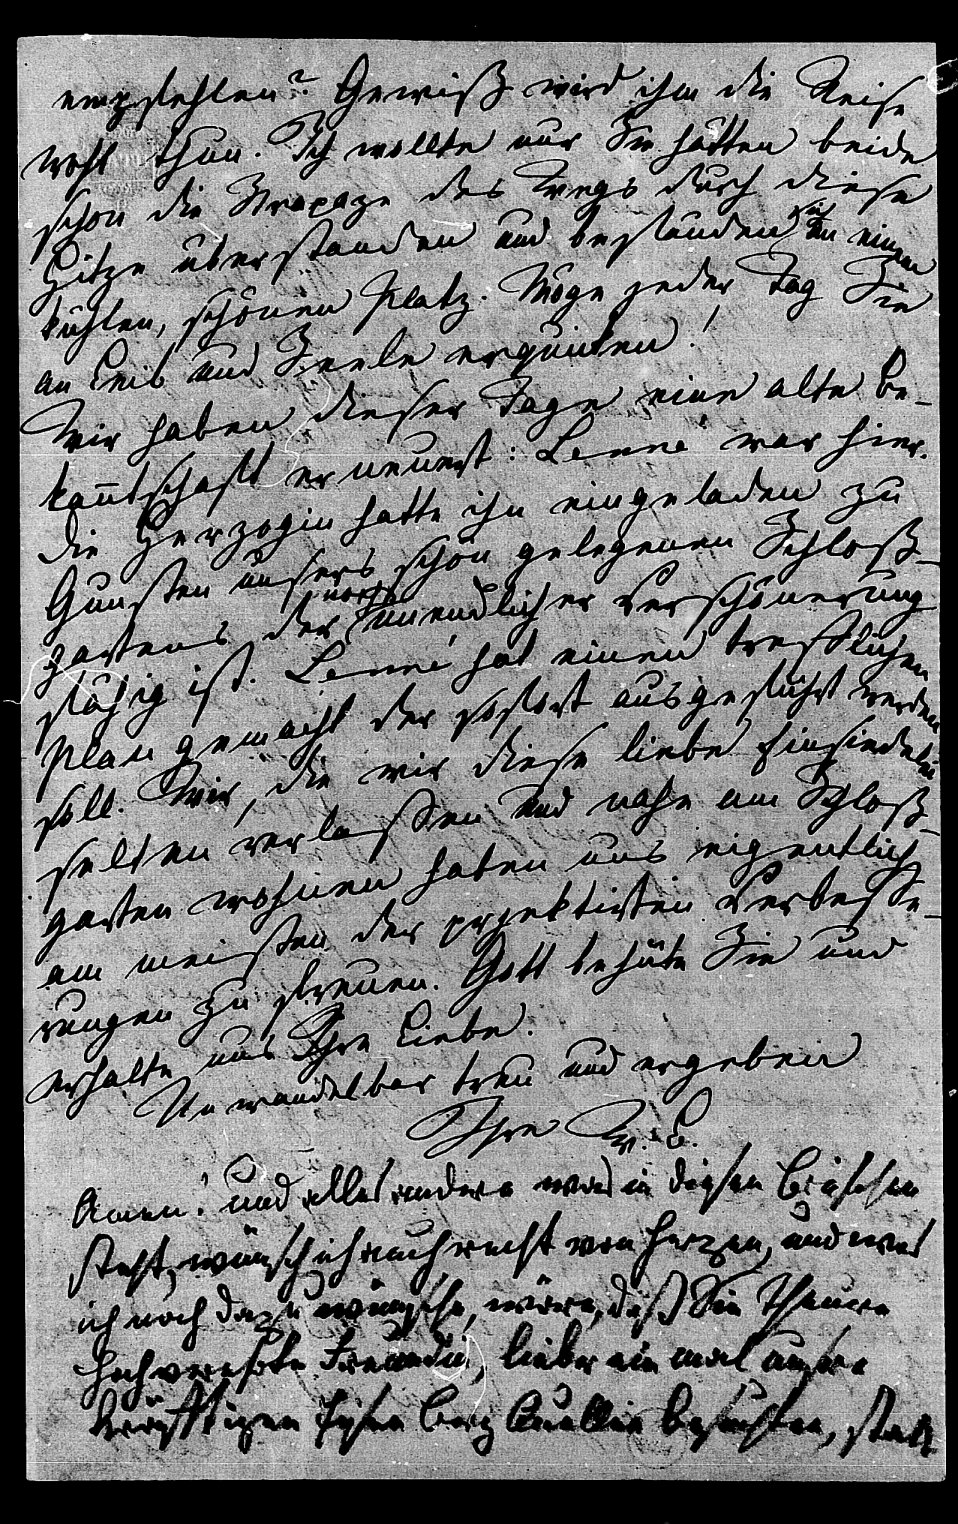 empfehlen? Gewiß wird ihm die Reise
wohl thun. Ich wollte nur Sie hätten beide
schon die Strapaze des Wegs durch diese
Hitze überstanden und befänden sich an einem
kühlen, schönen Platz. Möge jeder Tag Sie
an Leib und Seele erquicken!
Wir haben dieser Tage eine alte Be-
kanntschaft erneuert: Lenné war hier.
Die Herzogin hatte ihn eingeladen zu
Gunsten unsers schön gelegenen Schloß-
gartens der noch unendlicher Verschönerung
fähig ist. Lenné hat einen trefflichen
Plan gemacht der sofort ausgeführt werden
soll. Wir, die wir diese liebe Einsiedelei
selten verlassen und nahe am Schloß-
garten wohnen haben uns eigentlich
am meisten der projektirten Verbesse-
rungen zu freuen. Gott behüte Sie und
erhalte uns Ihre Liebe.
Unwandelbar treu und ergeben
Ihre
Amen! und alles andere was in diesen
steht, wünsch ich auch recht von Herzen, und was
ich noch dazu wünsche, wäre, daß Sie Theuere
hochverehrte Freundin, lieber ein mal unsre
kräftigen Quellen besuchten, statt